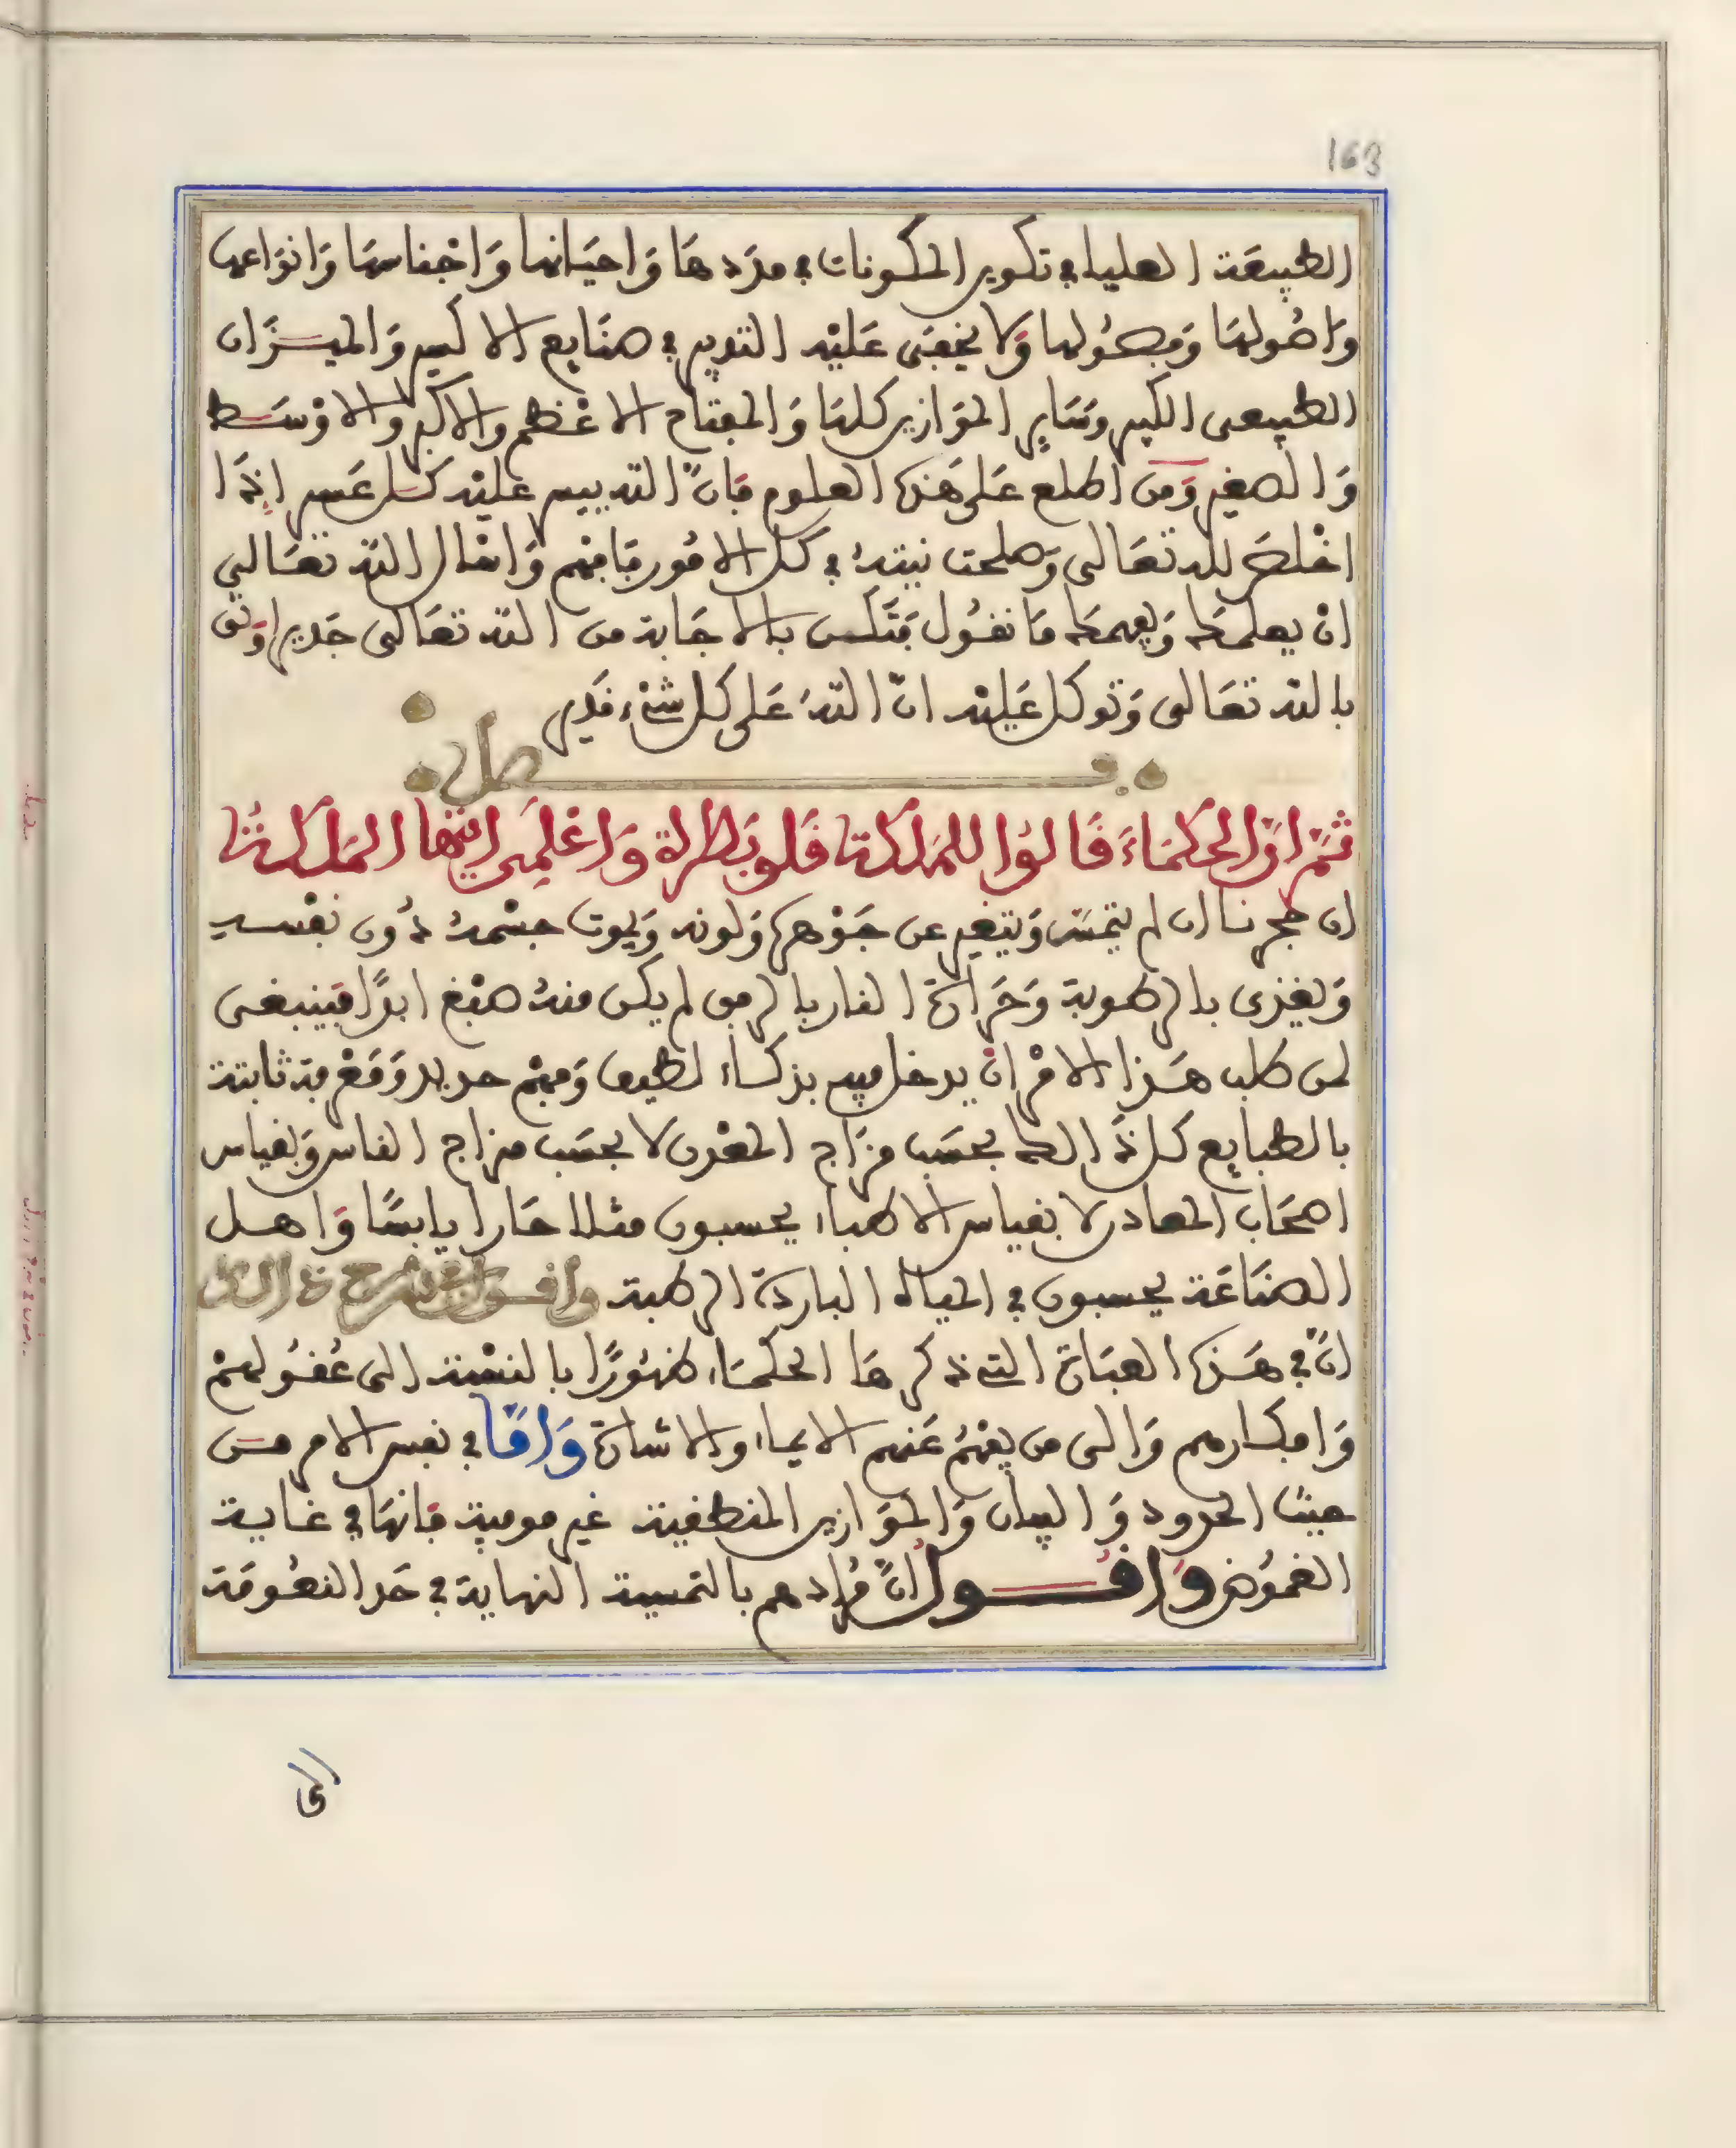 163
الطبيعة العليا في تكوين المكونات في مددها واحيانها واجناسها وانواعها
واصولها وفصولها ولا يخفى عليه التدبير في صنايع الاكسير والميزان
الطبيعى الكبير وساير الموازين كلها والمفتاح الاعظم والاكبر والاوسط
والصغير ومن اطلع على هذه العلوم فان الله ييسر عليه كل عسير اذا
اخلص لله تعالى وصلحت نيته في كل الامور فافهم واسال الله تعالى
ان يعلمك ويفهمك ما نقول فتكن بالاجابة من الله تعالى جديرا وثق
بالله تعالى وتوكل عليه ان الله على كل شيء قدير
فصل
ثم ان الحكماء قالوا للملكة قلوبطرة واعلمى ايتها الملكة
ان حجرنا ان لم يتمس ويتغير عن جوهره ولونه ويموت جسمه دون نفسه
ويغذى بالرطوبة وحرارة النار بالرفق لم يكن منه صبغ ابدا فينبغى
لمن طلب هذا الامر ان يدخل فيه بذكاء لطيف وفهم حديد ومعرفة ثابتة
بالطبايع كل ذالك بحسب مزاج المعدن لا بحسب مزاج الناس وبقياس
اصحاب المعادن لا بقياس الاطباء يحسبون مثلا حارا يابسا واهل
الصناعة يحسبون في المياه الباردة الرطبة واقول في شرح ذالك
ان في هذه العبارة التي ذكرها الحكماء ظهورا بالنسبة الى عقولهم
وافكارهم والى من يفهم عنهم الايماء والاشارة واما في نفس الامر من
حيث الحدود والبيان والموازين المنطقية غير موفية فانها في غاية
الغموض واقول ان مرادهم بالتمسية النهاية في حد النعومة
الى